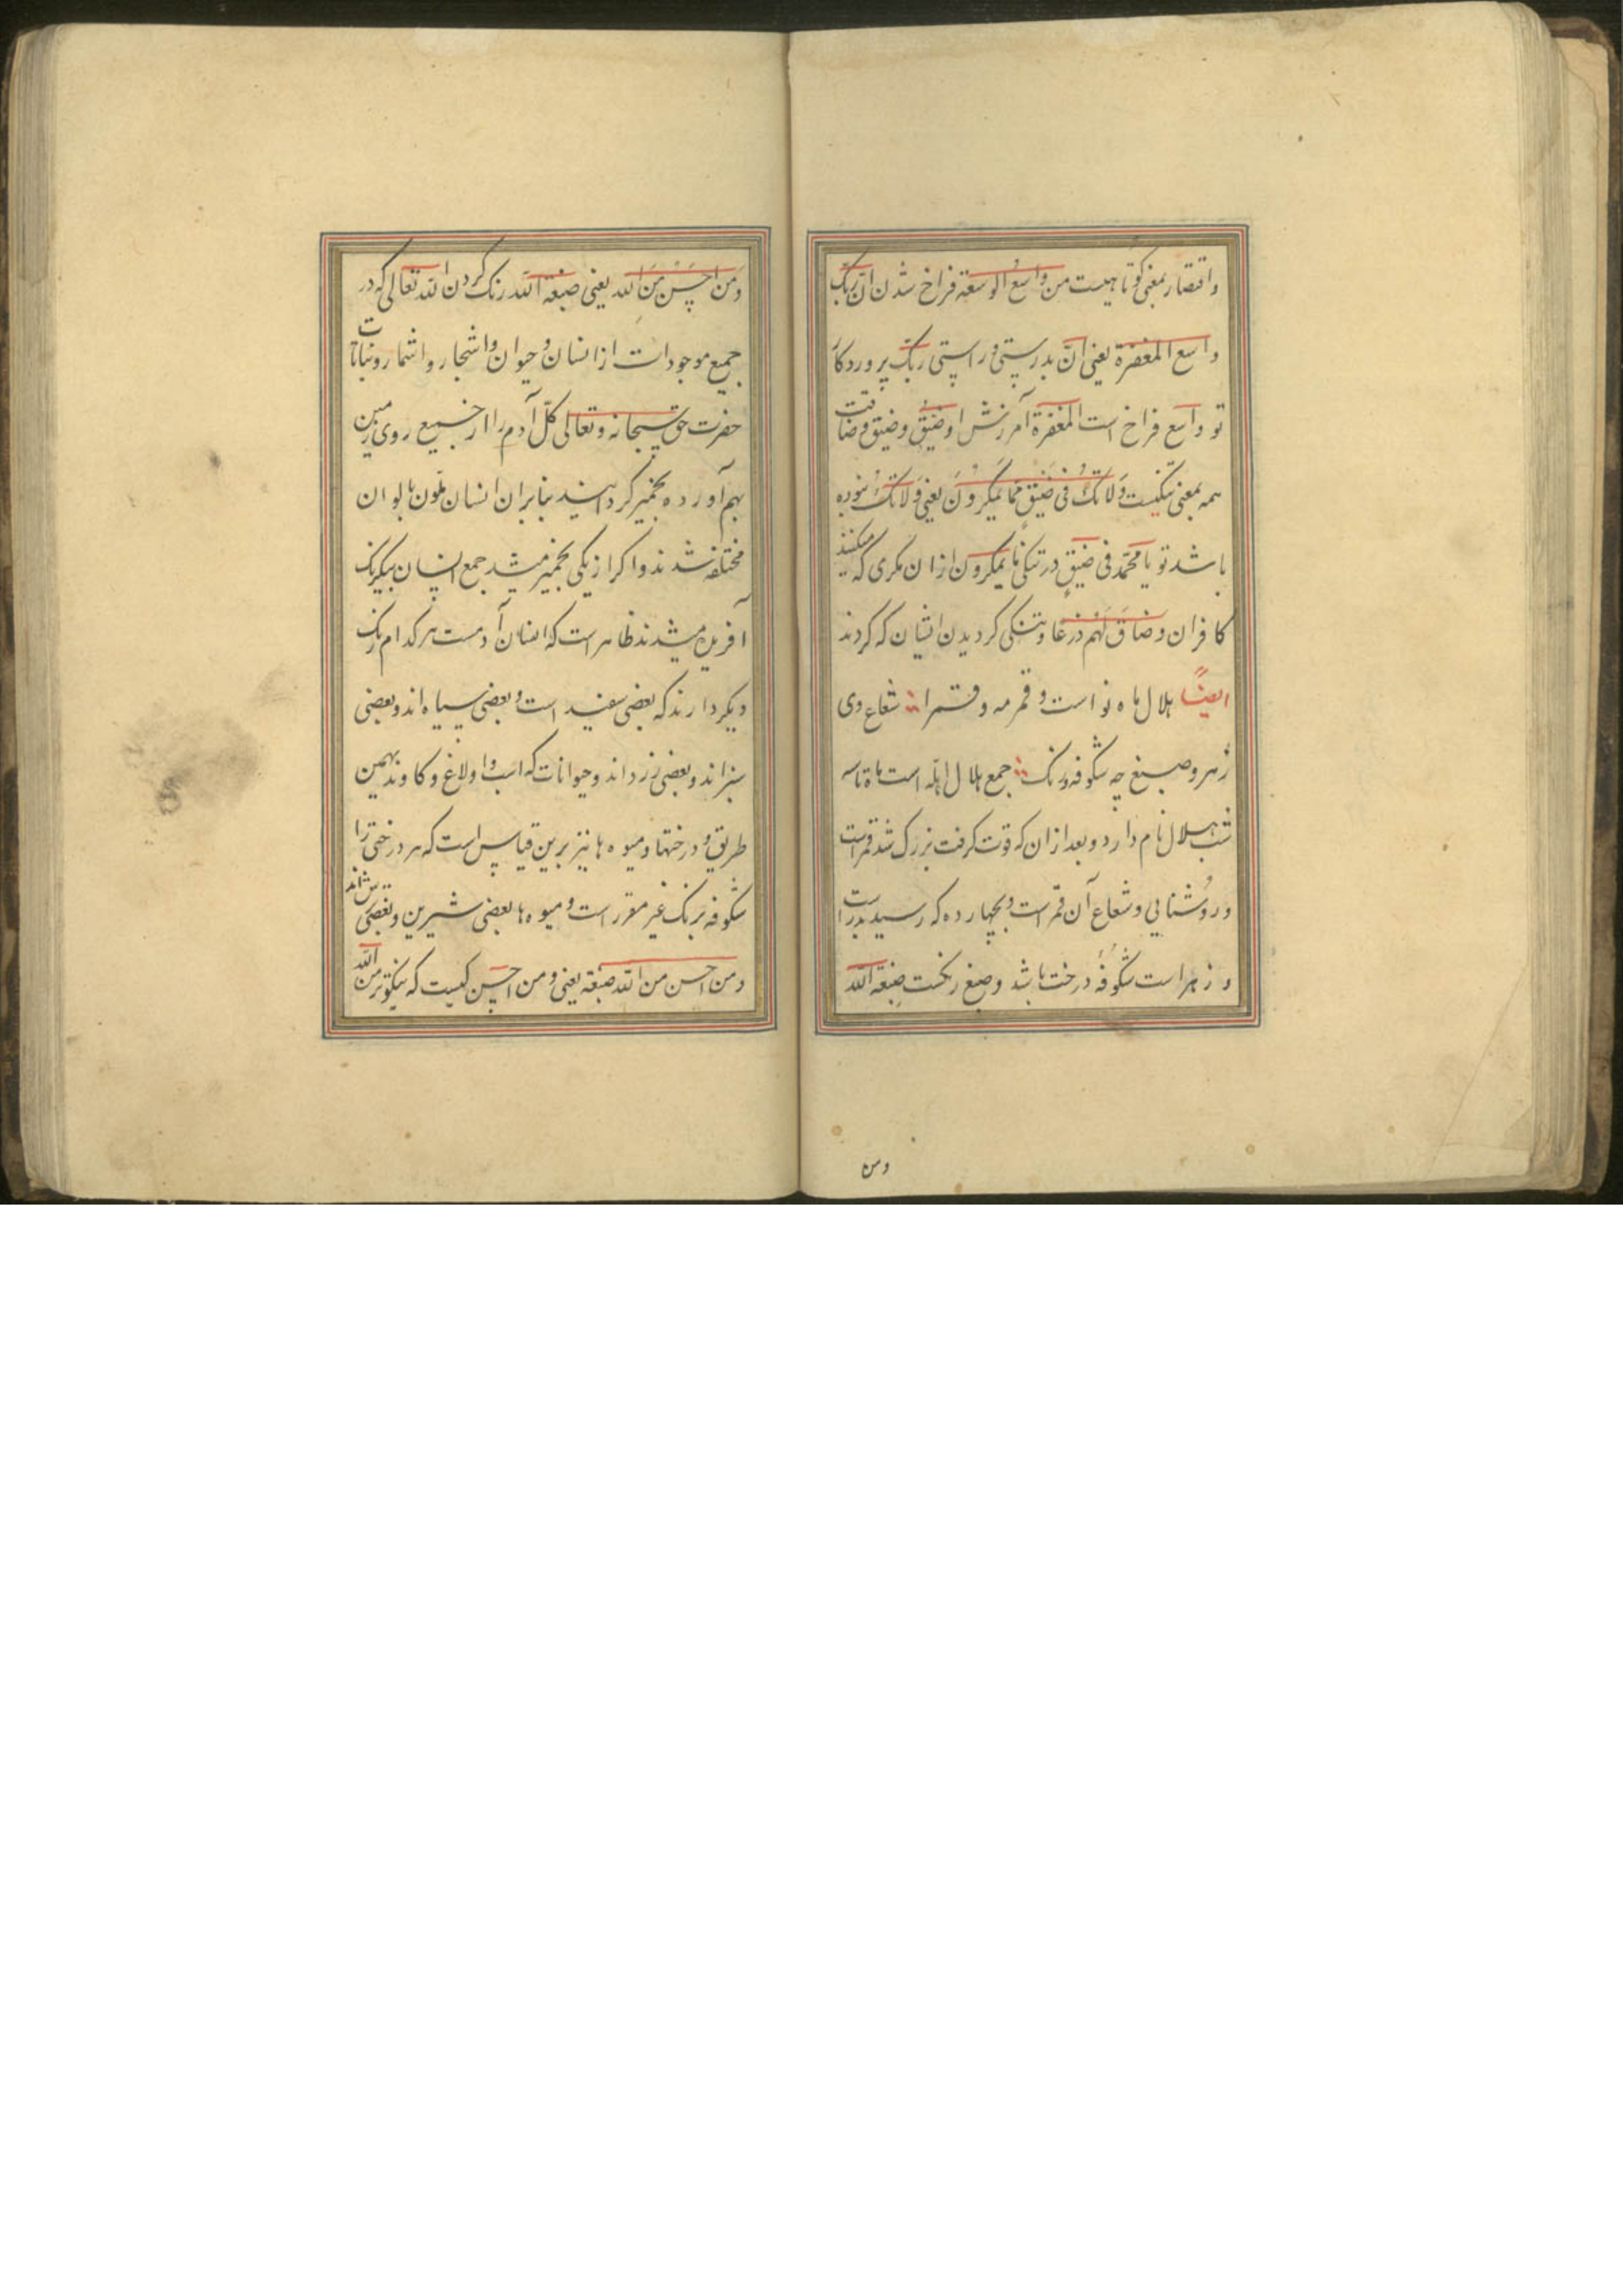 واقتصار بمعنی کوتاهیست من واسع الوسعة فراخ شدن انّ ربّک
واسع المغفرة یعنی انّ بدرستی وراستی ربّک پروردکار
تو واسع فراخ است المغفرة آمرزش او ضَیق وضیق وضاقت
همه بمعنی تنکیست وَلا تکُ فی ضَیقٍ ممّا یمکرونَ یعنی وَلا تکُ نبوده
باشد تو یا محمّد فی ضَیقٍ در تنکی ممّا یمکرون ازان مکری که میکنند
کافران وضاقَ بَهم ذرعا وبتنکی کردیدن ایشان که کردند
ایضاً هلال ماه نو است و قمر مه و قمرا شعاع وی
زهر وصبغ چه شکوفه ورنک جمع هلال اهلّه است ماه تا سه
شب هلال نام دارد وبعد ازان که قوت کرفت بزرک شد قمر است
وروشنایی وشعاع آن قمر است وبچهارده که رسید بدر است
وزهر است شکوفهٔ درخت باشد وصبغ رنکست صِبغة الله
ومن
وَمَن احسَن مِنَ الله یعنی صبغة الله رنک کردن الله تعالی که در
جمیع موجودات از انسان وحیوان واشجار واثمار ونباتات
حضرت حق سبحانه وتعالی کلّ آدم را از جمیع روی زمین
بهم آورده بخمیر کرد بنابران انسان ملون بالوان
مختلفه شدند واکر از یکی بخمیر میشد جمع انسان بیکرنک
آفریده میشدند ظاهر است که انسان آدمست هر کدام رنک
دیکر دارند که بعضی سفید است وبعضی سیاه اند وبعضی
سبز اند وبعضی زرد اند وحیوانات که اسب واولاغ وکاوند بهمین
طریق ودرختها ومیوه ها نیز برین قیاس است که هر درختی را
شکوفه برنک غیر مقرر است ومیوه ها بعضی شیرین وبعضی ترش اند
ومن احسن من الله صبغة یعنی ومن احسن کیست که نیکوتر من الله